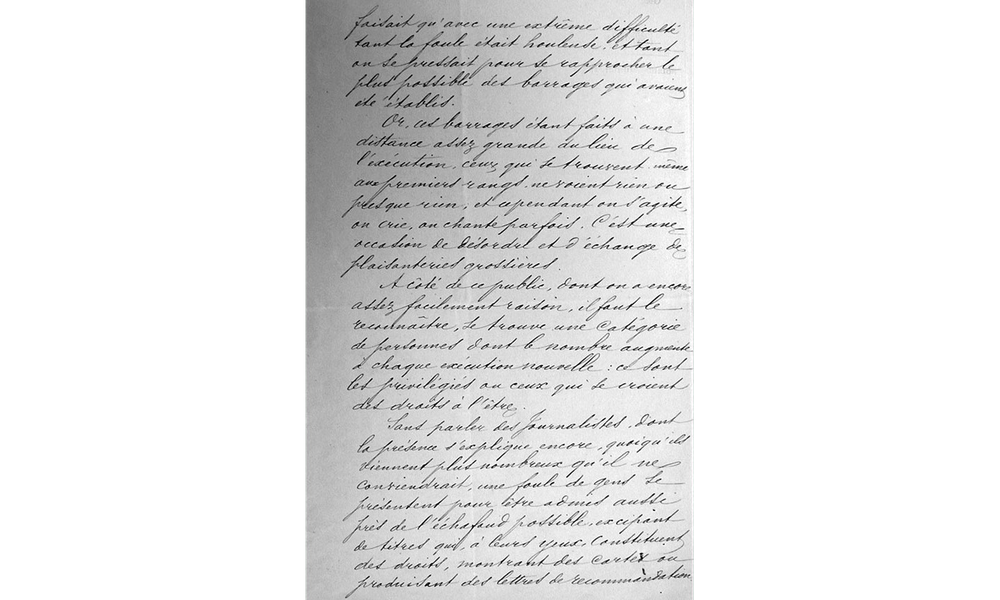 faisait qu'avec une extrême difficulté
tant la foule était houleuse, et tant
on se pressait pour se rapprocher le
plus possible des barrages qui avaient
été établis.
Or, ces barrages étant faits à une
distance assez grande du lieu de
l'exécution, ceux qui se trouvent même
aux premiers rangs ne voient rien ou
presque rien, et cependant on s'agite,
on crie, on chante parfois. C'est une
occasion de désordre et d'échange de
plaisanteries grossières.
A côté de ce public, dont on a encore
assez facilement raison, il faut le
reconnaître, se trouve une catégorie
de personnes dont le nombre augmente
à chaque exécution nouvelle : ce sont
les privilégiés ou ceux qui se croient
des droits à l'être.
Sans parler des Journalistes, dont
la présence s'explique encore, quoiqu'ils
viennent plus nombreux qu'il ne
conviendrait, une foule de gens se
présentent pour être admis aussi
près de l'échafaud possible, excipant
de titres qui, à leurs yeux, constituent
des droits, montrant des cartes ou
produisant des lettres de recommandation